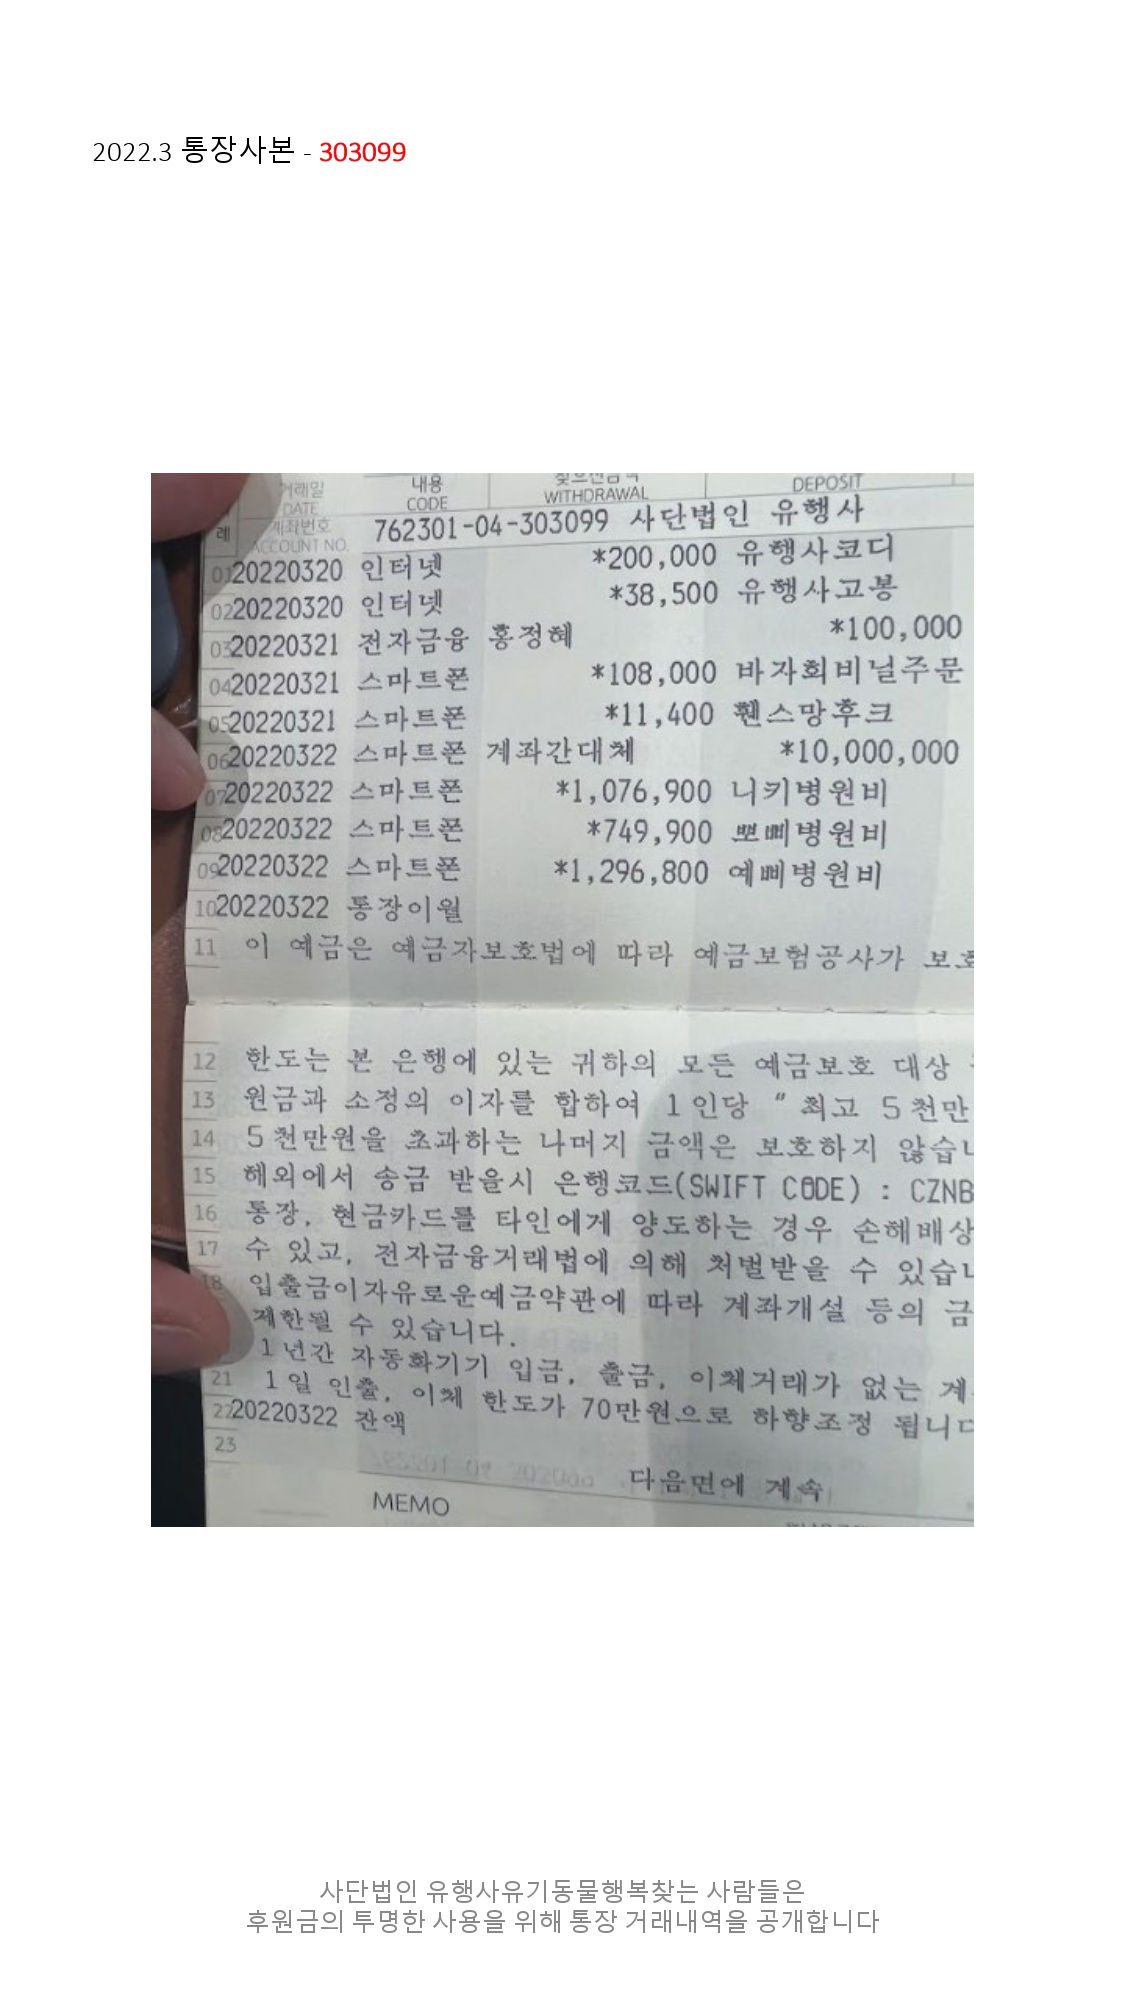 2022.3 통장사본 - 303099
거래일 내용 찾으신금액
DATE CODE WITHDRAWAL DEPOSIT
계좌번호
ACCOUNT NO. 762301-04-303099 사단법인 유행사
01 20220320 인터넷 *200,000 유행사코디
02 20220320 인터넷 *38,500 유행사고봉
03 20220321 전자금융 홍정혜 *100,000
04 20220321 스마트폰 *108,000 바자회비닐주문
05 20220321 스마트폰 *11,400 휀스망후크
06 20220322 스마트폰 계좌간대체 *10,000,000
07 20220322 스마트폰 *1,076,900 니키병원비
08 20220322 스마트폰 *749,900 뽀삐병원비
09 20220322 스마트폰 *1,296,800 예삐병원비
10 20220322 통장이월
11 이 예금은 예금자보호법에 따라 예금보험공사가 보호
12 한도는 본 은행에 있는 귀하의 모든 예금보호 대상
13 원금과 소정의 이자를 합하여 1인당 "최고 5천만
14 5천만원을 초과하는 나머지 금액은 보호하지 않습니
15 해외에서 송금 받을시 은행코드(SWIFT CODE) : CZNB
16 통장, 현금카드를 타인에게 양도하는 경우 손해배상
17 수 있고, 전자금융거래법에 의해 처벌받을 수 있습니
18 입출금이자유로운예금약관에 따라 계좌개설 등의 금
제한될 수 있습니다.
1년간 자동화기기 입금, 출금, 이체거래가 없는 계
21 1일 인출, 이체 한도가 70만원으로 하향조정 됩니다
22 20220322 잔액
23
다음면에 계속
MEMO
사단법인 유행사유기동물행복찾는 사람들은
후원금의 투명한 사용을 위해 통장 거래내역을 공개합니다